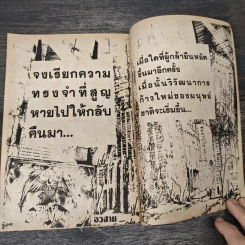 จงเรียกความ
ทรงจำที่สูญ
หายไปให้กลับ
คืนมา...
อวสาน
เมื่อใดที่ผู้กล้ายืนหยัด
ขึ้นมาอีกครั้ง
เมื่อนั้นวิวัฒนาการ
ก้าวใหม่ของมนุษย์
ชาติจะเริ่มขึ้น...